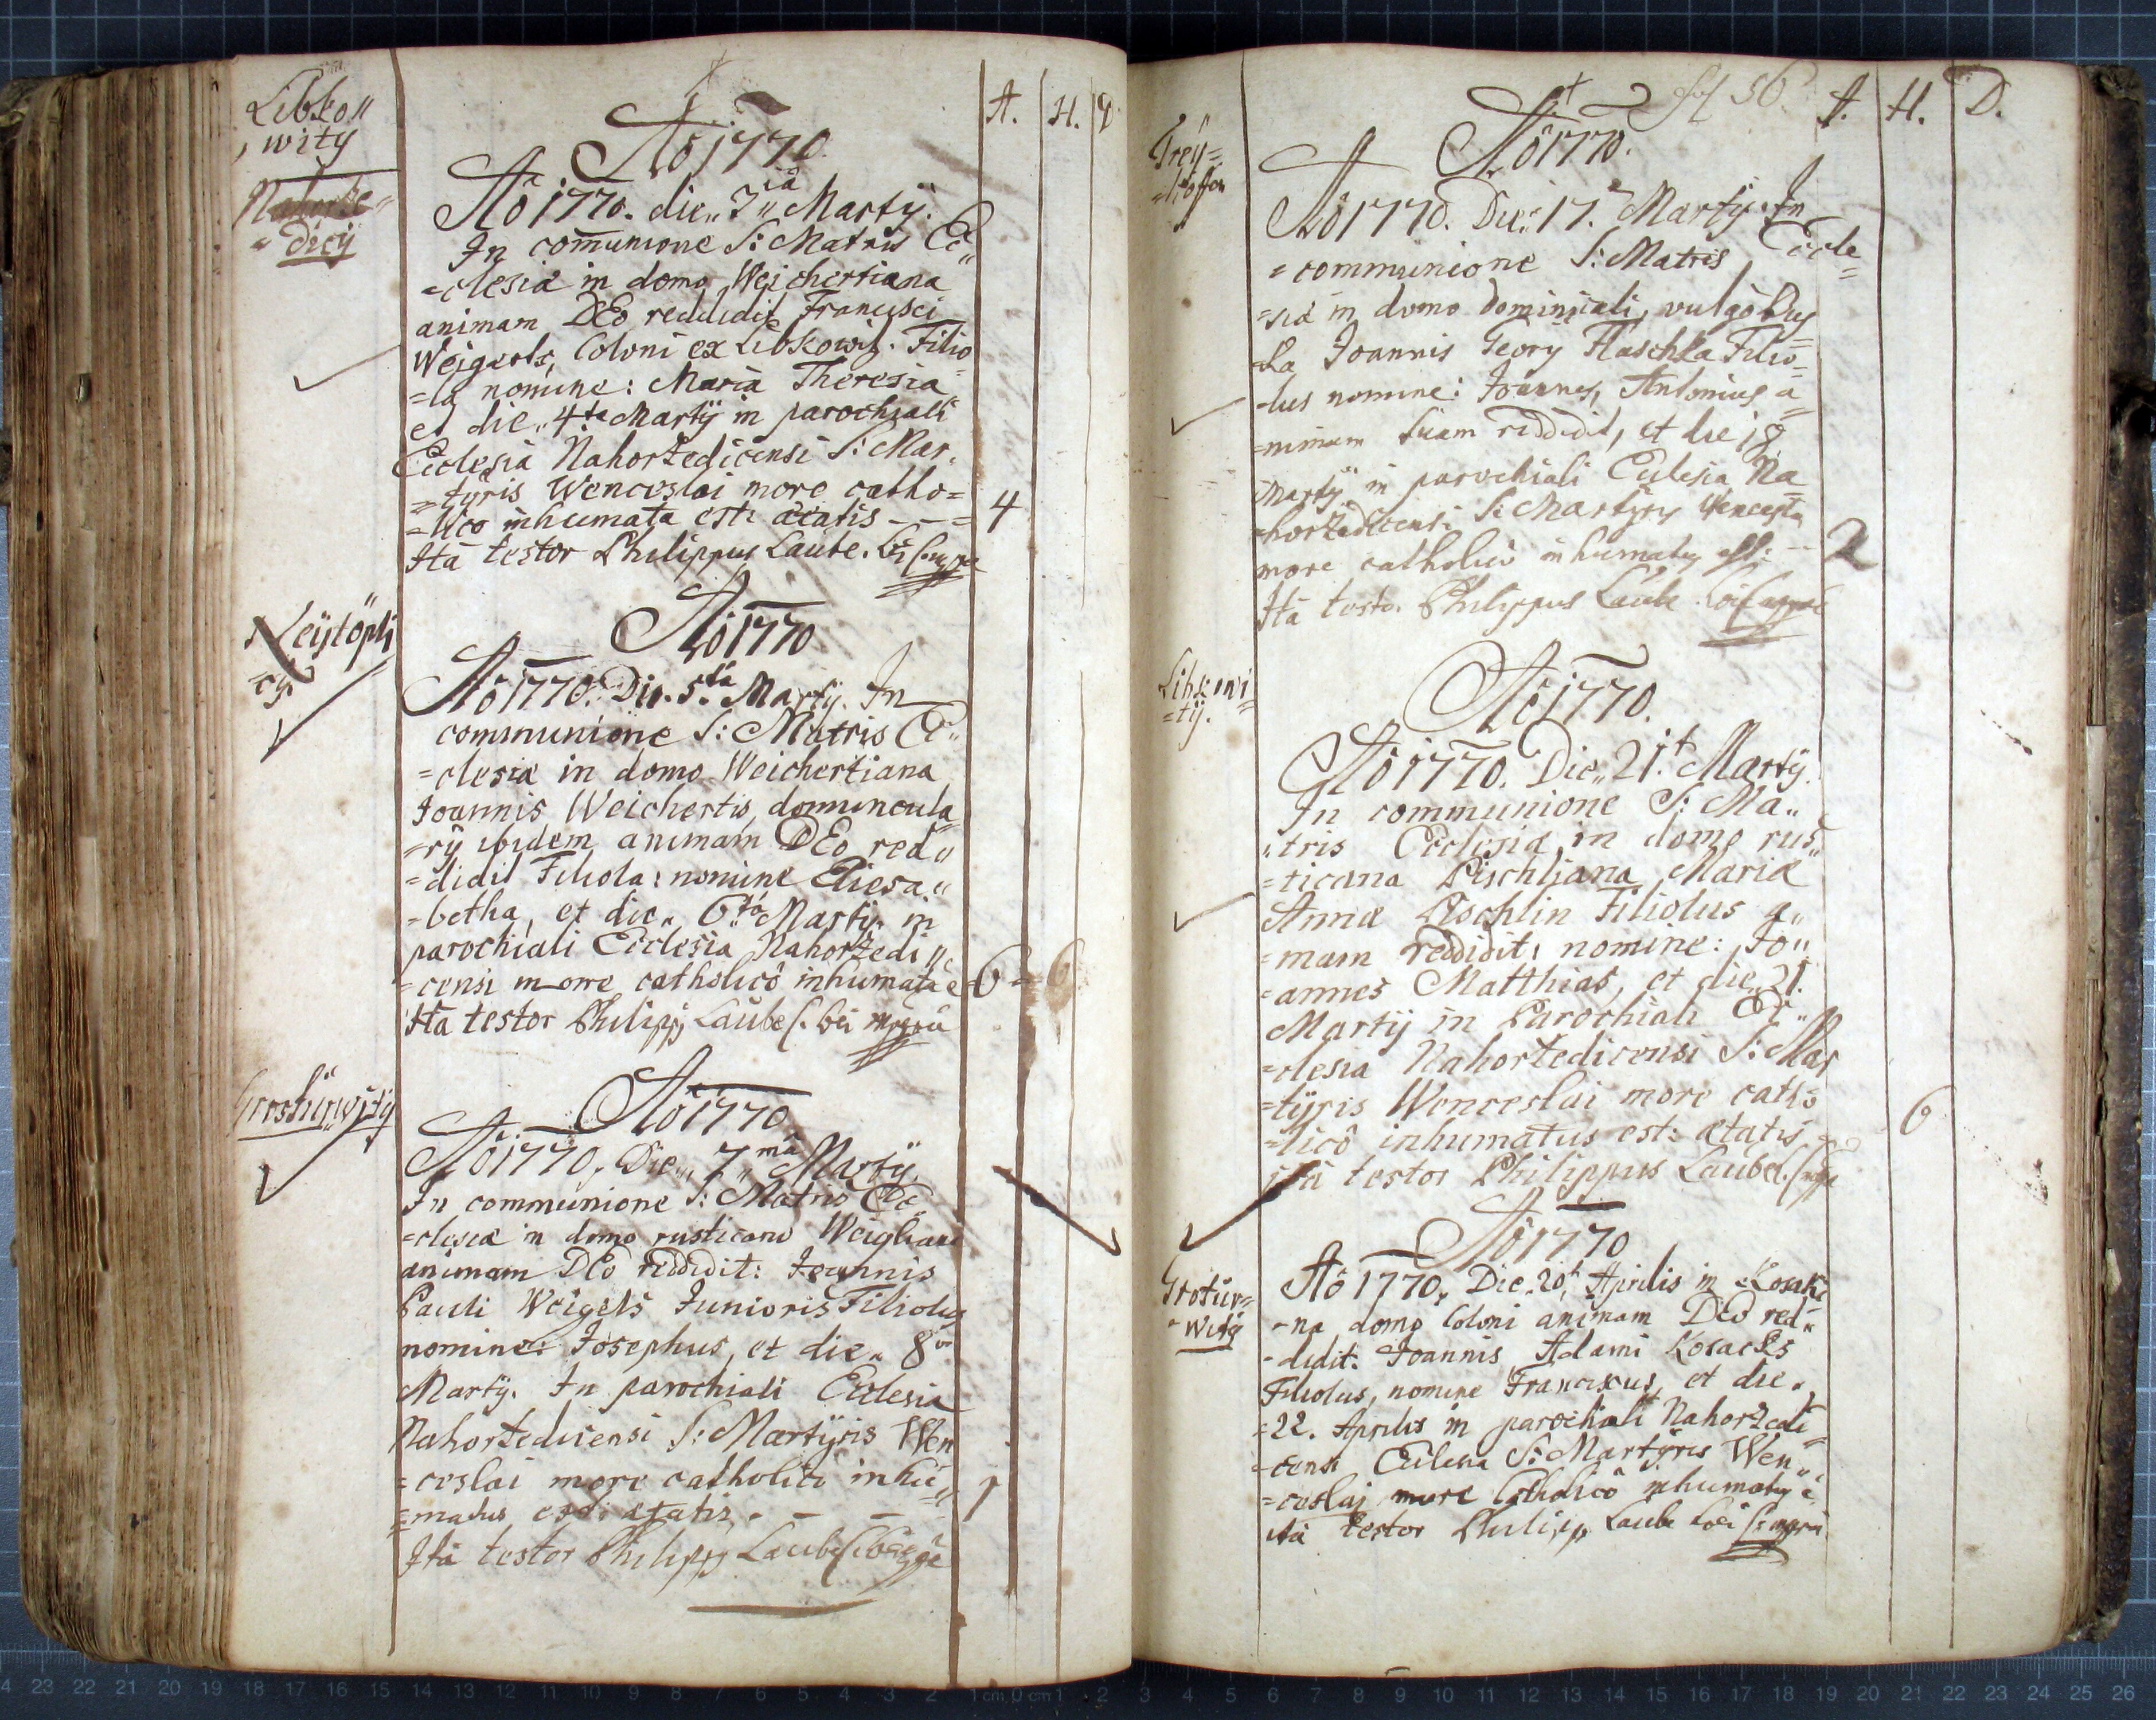 Libko„
wity
Nahorže-
dicij
A. H. D
Aô 1770
Aô 1770. die „ 3 „ Martÿ.
In com̄unione S: Matris Ec„
=clesiæ in domo Weichertiana
animam DEo reddidit Francisci
Weigerts, Coloni ex Libkowitz. Filio
=la nomine: Maria Theresia
et die „ 4ta Martÿ in parochiali
Ecclesia Nahoržedicensi S: Mar.
=tÿris Wenceslai more catho=
=lico inhumata est: ætatis - - = 4
Ità testor Philippus Laube.
Aô 1770
Aô 1770. Die. 5ta Martÿ. In
communione S: Matris Ec„
=clesiæ in domo Weichertiana
Joannis Weichertis, domuncula
=rÿ ibidem animam DEo red„
=didit Filiola: nomine Eliesa„
=betha, et die „ 6ta Martÿ. in
parochiali Ecclesia Nahoržedi„
=censi more catholicô inhumata ê 6
Ità testor Philipp Laube
Aô 1770
Aô 1770, Die „ 7 „ mâ Martÿ
In communione S: Matris Ec„
=clesiæ in domo rusticana Weigliana
animam DEo reddidit: Joannis
Pauli Weigels Junioris Filiolus
nomine: Josephus, et die „ 8va
Martÿ. In parochiali Ecclesia
Nahoržedicensi S: Martÿris Wen
=ceslai more catholico inhu„
=matus est: ætatis - - - 1
Ità testor Philipp Laube
A. H. D.
Aô 1770.
Aô 1770. Die. 17. Martÿ. In
=communione S: Matris Eccle=
=siæ in domo dominicali, vulgò
Joannis Georg Flaschka Filio=
=lus nomine: Joannes, Antonius a
=nimam suam reddidit, et die 18
Martÿ in parochiali Ecclesia Na
=horžedicensi S: Martyris Wencesla
more catholicô inhumatus est: -- 2
Ità testor Philippus Laube
Libkowi=
=tÿ.
Aô 1770.
Aô 1770. Die „ 21.t Martÿ.
In communione S: Ma„
„tris Ecclesiæ in domo rus„
=ticana Pischliana Mariæ
Annæ Pischlin Filiolus a„
=mam reddidit: nomine: Jo„
=annes Matthias, et die „ 21.
Martÿ in Parochiali Ec„
=clesia Nahoržedicensi S: Mar
=tÿris Wenceslai more catho
=licô inhumatus est: ætatis 6
ità testor Philippus Laube
Aô 1770
Aô 1770. Die. 20t Aprilis in Kosaki
=na domo Coloni animam DEo red„
=didit. Joannis Adami Kosacks
Filiolus, nomine Franciscus, et die.
=22. Aprilis in parochiali Nahoržedi
=censi Ecclesia S: Martÿris Wen„
=ceslai more Catholicô inhumatus ê
ità testor Philipp Laube